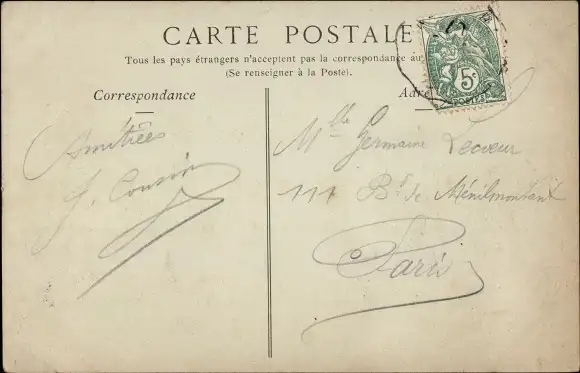 CARTE POSTALE
Tous les pays étrangers n'acceptent pas la correspondance au
(Se renseigner à la Poste).
Correspondance
Adre
5c
POSTES
Amitiées
J. Cousin
Mlle Germaine Lecoeur
111 Bd de Ménilmontant
Paris